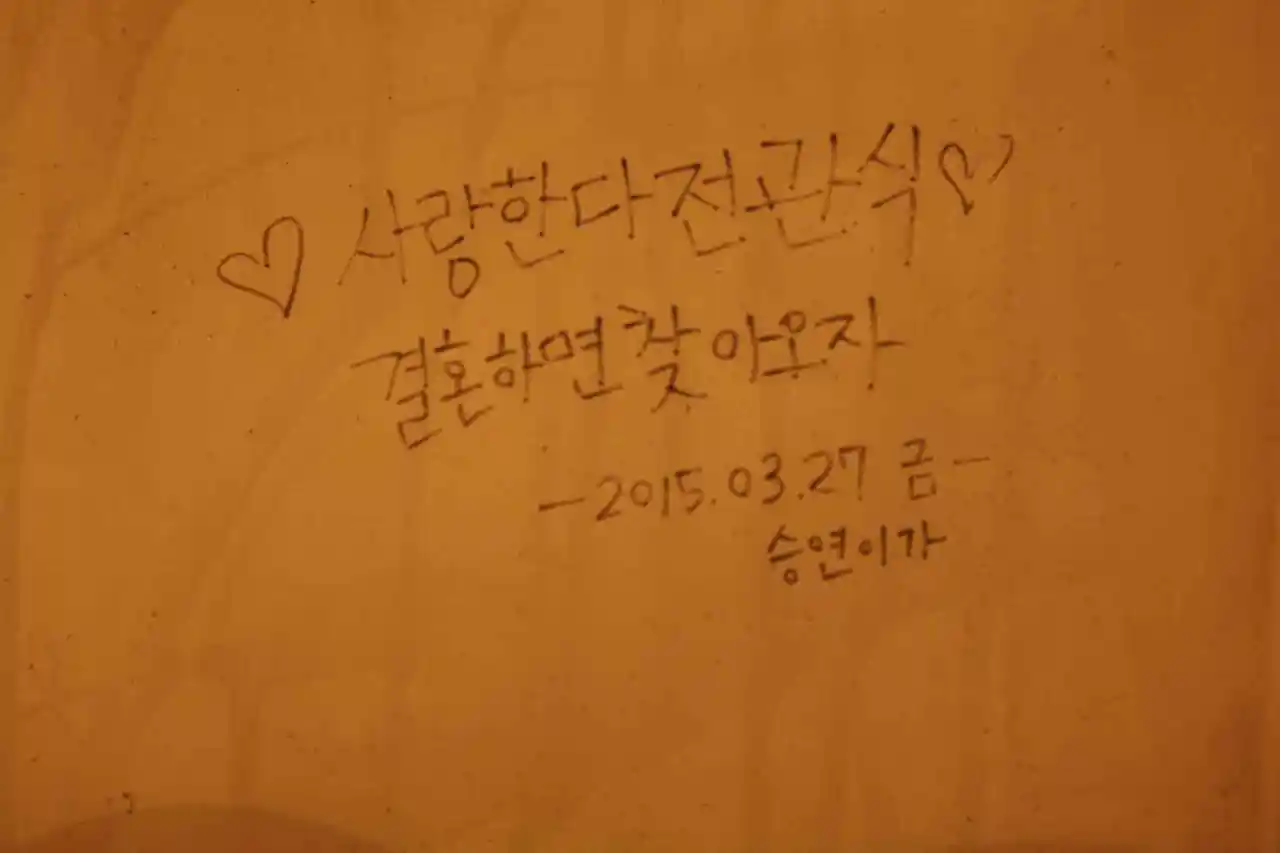 ♡ 사랑한다 전관식 ♡
결혼하면 찾아오자
-2015.03.27 금-
승연이가